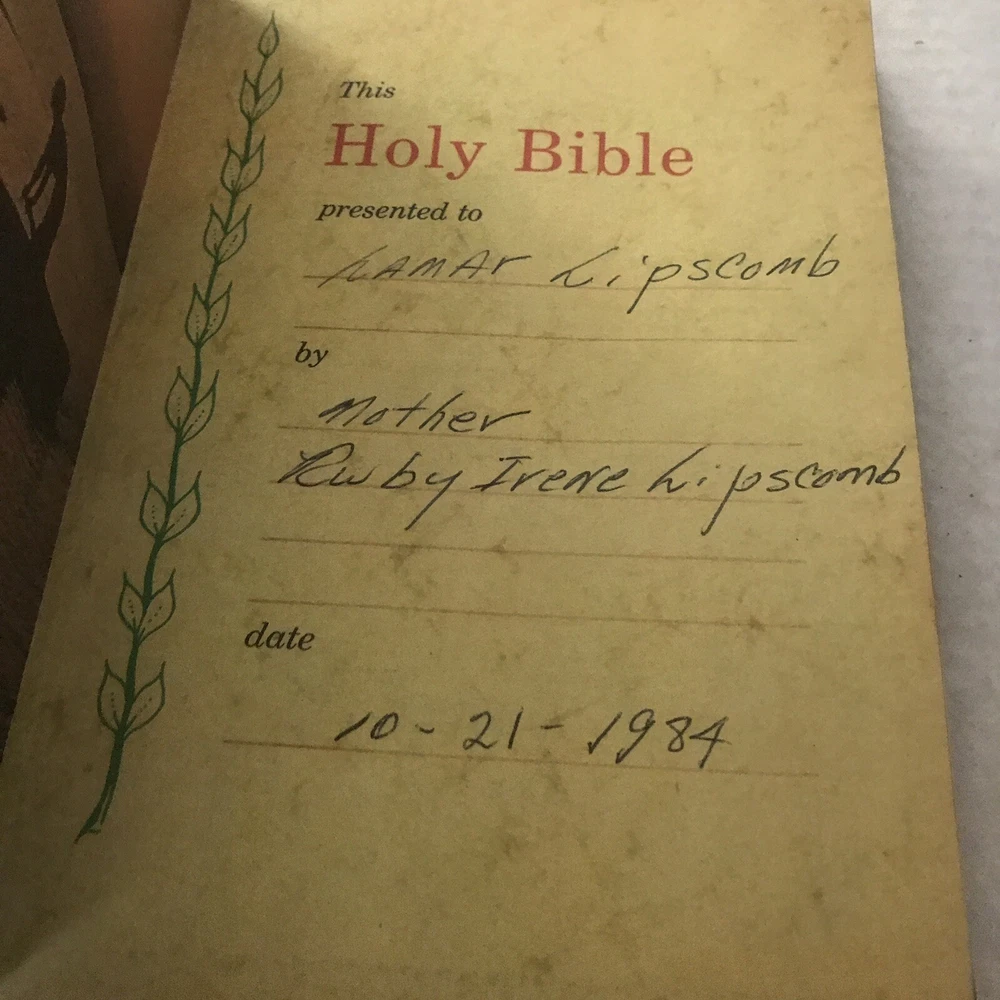 This
Holy Bible
presented to
Lamar Lipscomb
by
Mother
Ruby Irene Lipscomb
date
10-21-1984